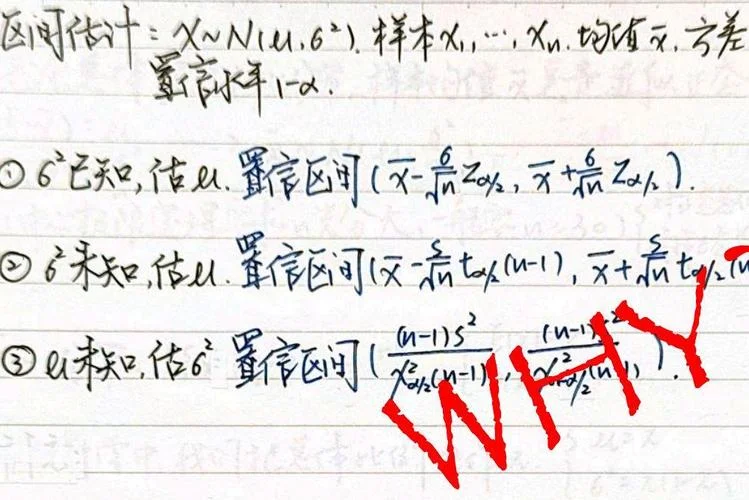 区间估计：X~N(μ,σ²). 样本x₁,…,xₙ. 均值x̄. 方差
置信水平1-α.
① σ²已知,估μ. 置信区间(x̄-σ/√n Z_{α/2}, x̄+σ/√n Z_{α/2}).
② σ²未知,估μ. 置信区间(x̄-S/√n t_{α/2}(n-1), x̄+S/√n t_{α/2}(n
③ μ未知,估σ² 置信区间((n-1)S²/χ²_{α/2}(n-1),
WHY